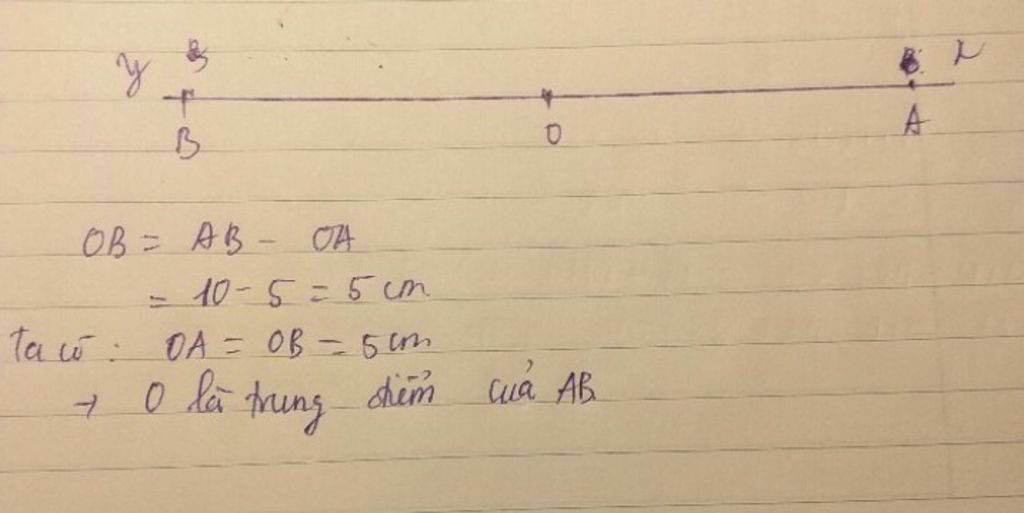 y B B x
B O A
OB = AB - OA
= 10 - 5 = 5 cm
Ta có : OA = OB = 5 cm
→ O là trung điểm của AB